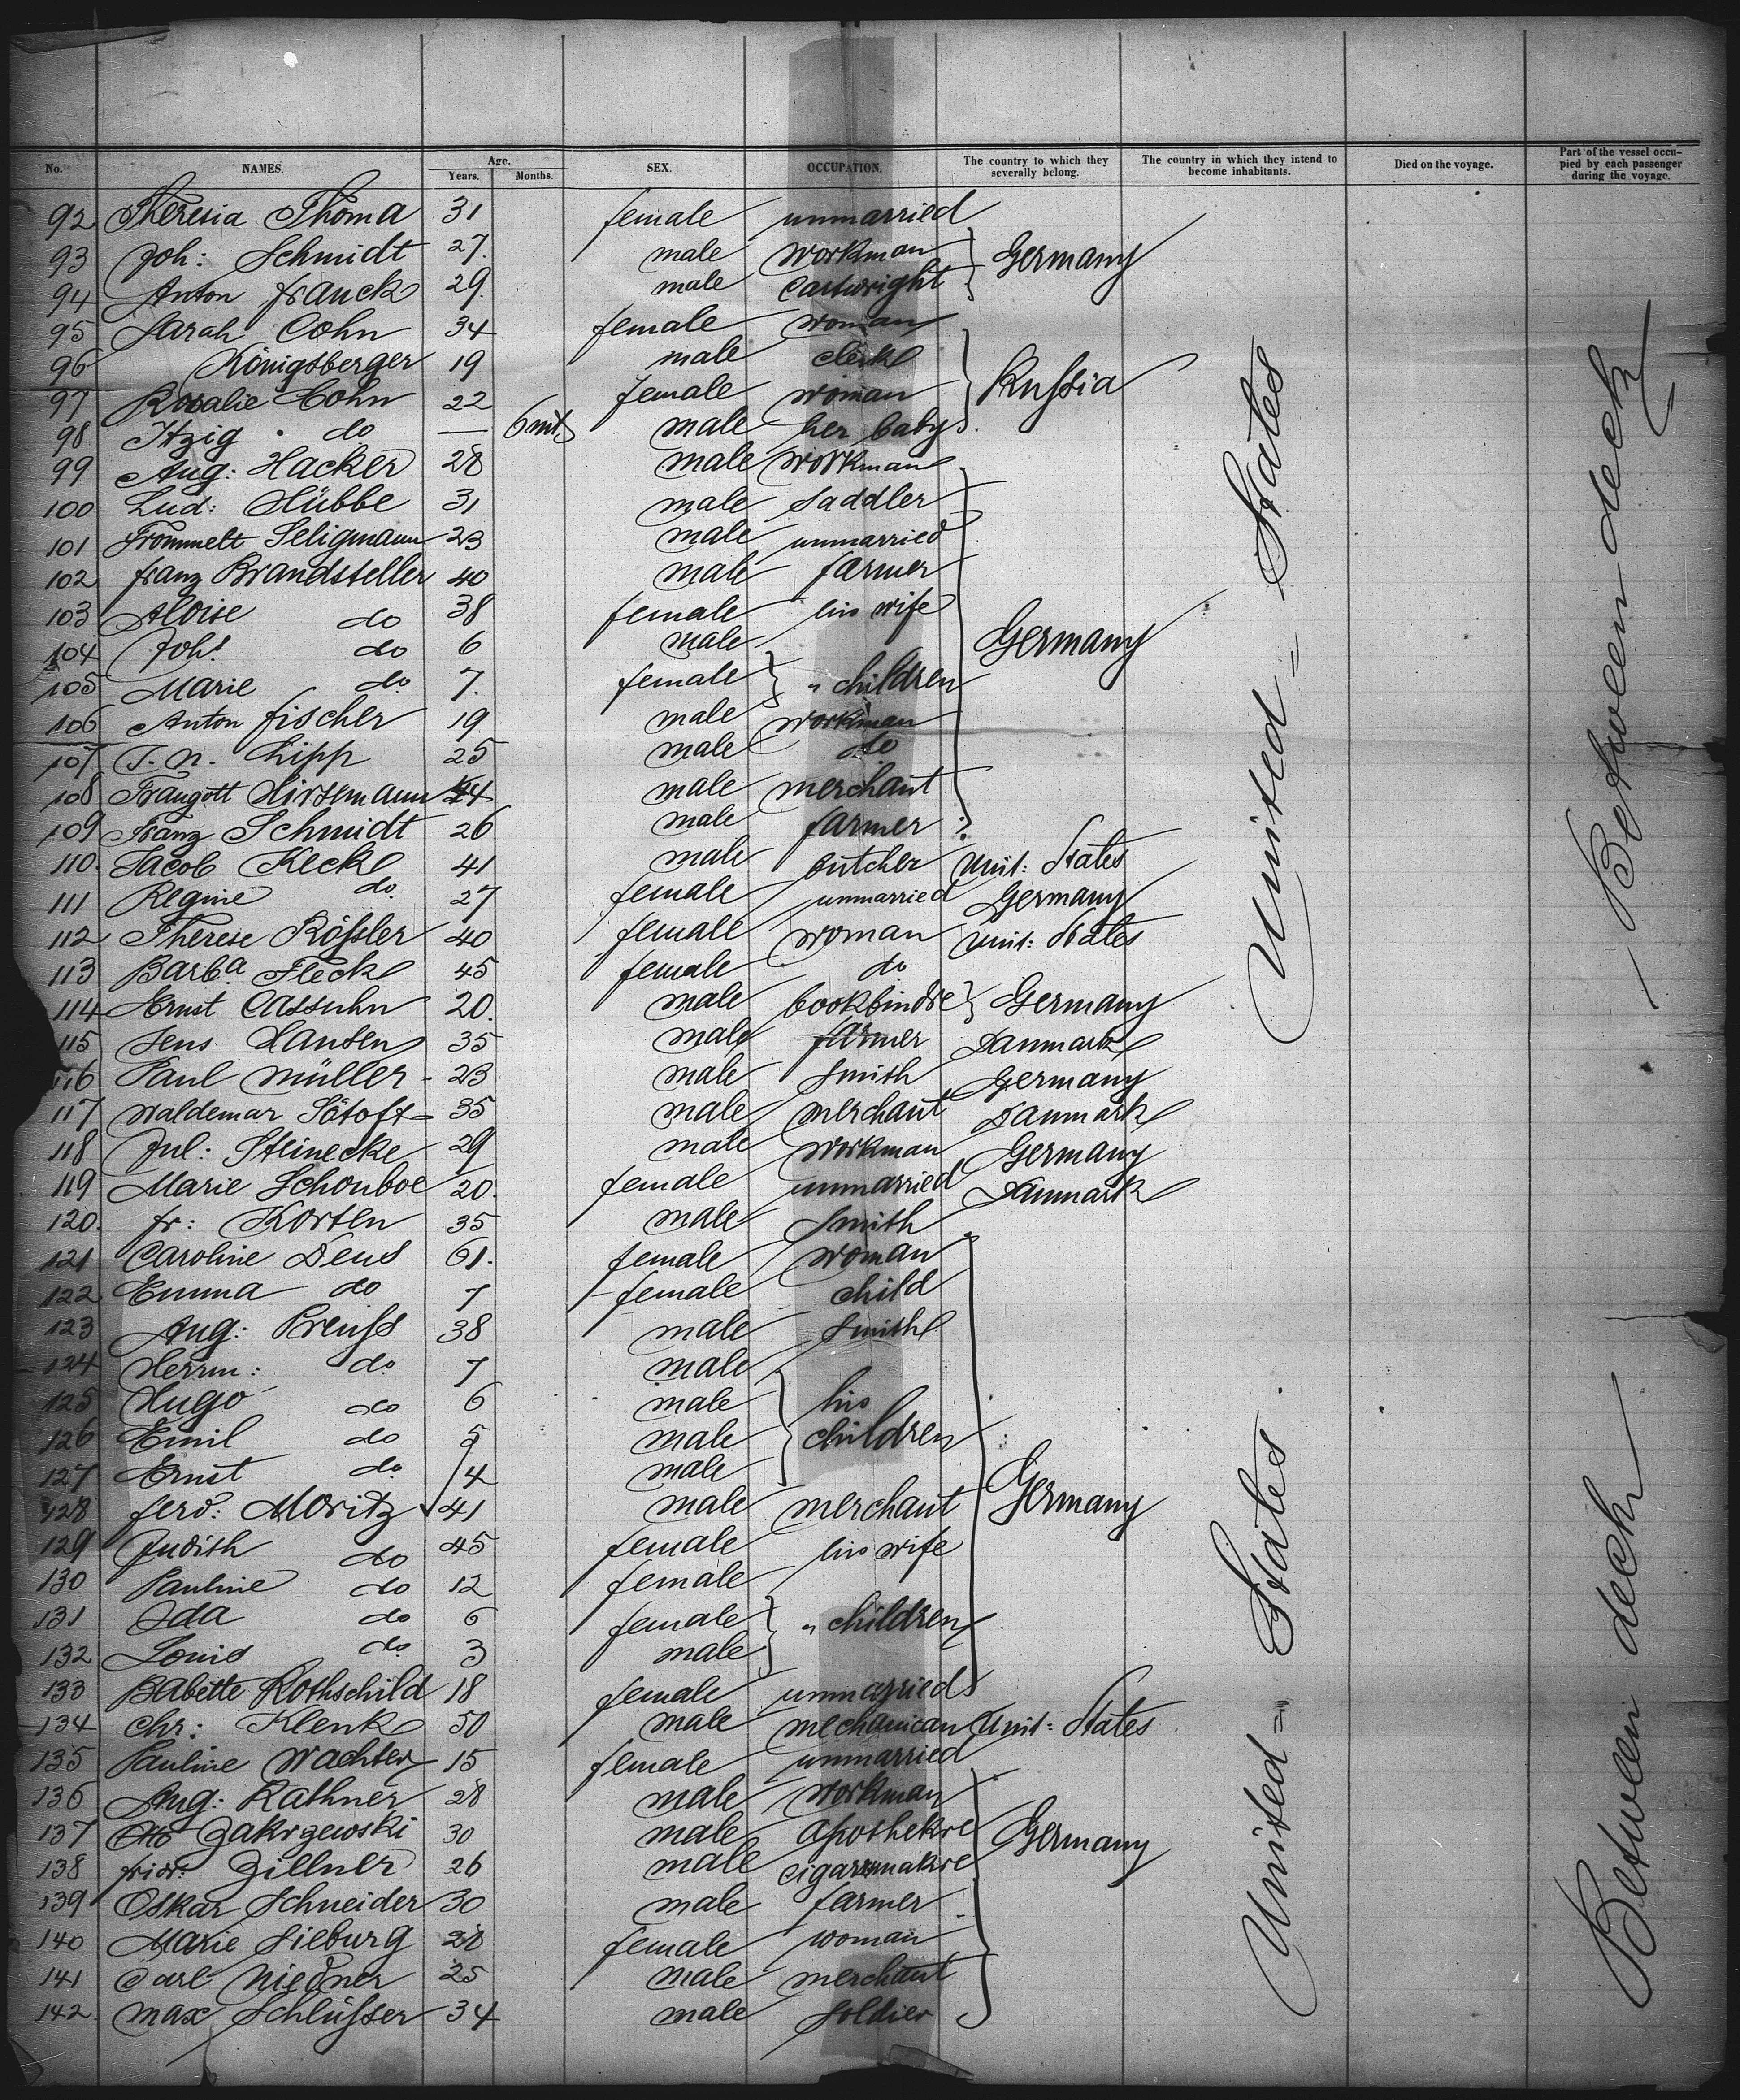 No. NAMES. Age. Years. Months. SEX. OCCUPATION. The country to which they severally belong. The country in which they intend to become inhabitants. Died on the voyage. Part of the vessel occupied by each passenger during the voyage.
92 Theresia Thoma 31 female unmarried
93 Joh: Schmidt 27. male workman Germany
94 Anton Franck 29. male Cartwright
95 Sarah Cohn 34 female woman
96 Königsberger 19 male clerk Russia
97 Rosalie Cohn 22 female woman
98 Itzig do — 6 mts male her baby
99 Aug: Hacker 28 male workman
100 Lud: Hübbe 31 male Saddler
101 Frommelt Seligmann 23 male unmarried
102 Franz Brandsteller 40 male farmer
103 Aloise do 38 female his wife
104 Johs. do 6 male Germany
105 Marie do. 7. female " children
106 Anton Fischer 19 male workman
107 J. N. Lipp 25 male do
108 Traugott Hirsemann 24 male merchant
109 Franz Schmidt 26 male farmer
110. Jacob Keck 41 male butcher Unit: States
111 Regine do. 27 female unmarried Germany
112 Therese Rößler 40 female woman Unit: States
113 Barba. Fleck 45 female do
114 Ernst Cassuhn 20. male bookbindre Germany
115 Jens Hansen 35 male farmer Danmark
116 Paul Müller 23 male Smith Germany
117 Waldemar Sötoft 35 male merchant Danmark
118 Jul: Steinecke 29 male workman Germany
119 Marie Schouboe 20. female unmarried Danmark
120. Fr: Korten 35 male Smith
121 Caroline Deus 61. female woman
122 Emma do 7 female child
123 Aug: Preuß 38 male Smith
124 Herrm: do. 7 male
125 Hugo do 6 male his
126 Emil do 5 male children
127 Ernst do. 4 male
128 Ferd: Moritz 41 male merchant Germany
129 Judith do 45 female his wife
130 Pauline do 12 female
131 Ida do 6 female " children
132 Louis do 3 male
133 Babette Rothschild 18 female unmarried
134 Chr: Klenk 50 male mechanican Unit: States
135 Pauline Wachter 15 female unmarried
136 Aug: Rathner 28 male workman
137 Otto Zakrzewski 30 male Apothekre Germany
138 Fridr: Zillner 26 male cigarrmakre
139 Oskar Schneider 30 male farmer
140 Marie Sieburg 28 female woman
141 Carl Niedner 25 male merchant
142. Max Schlüßer 34 male Soldier
United = States
United = States
Between deck
Between deck